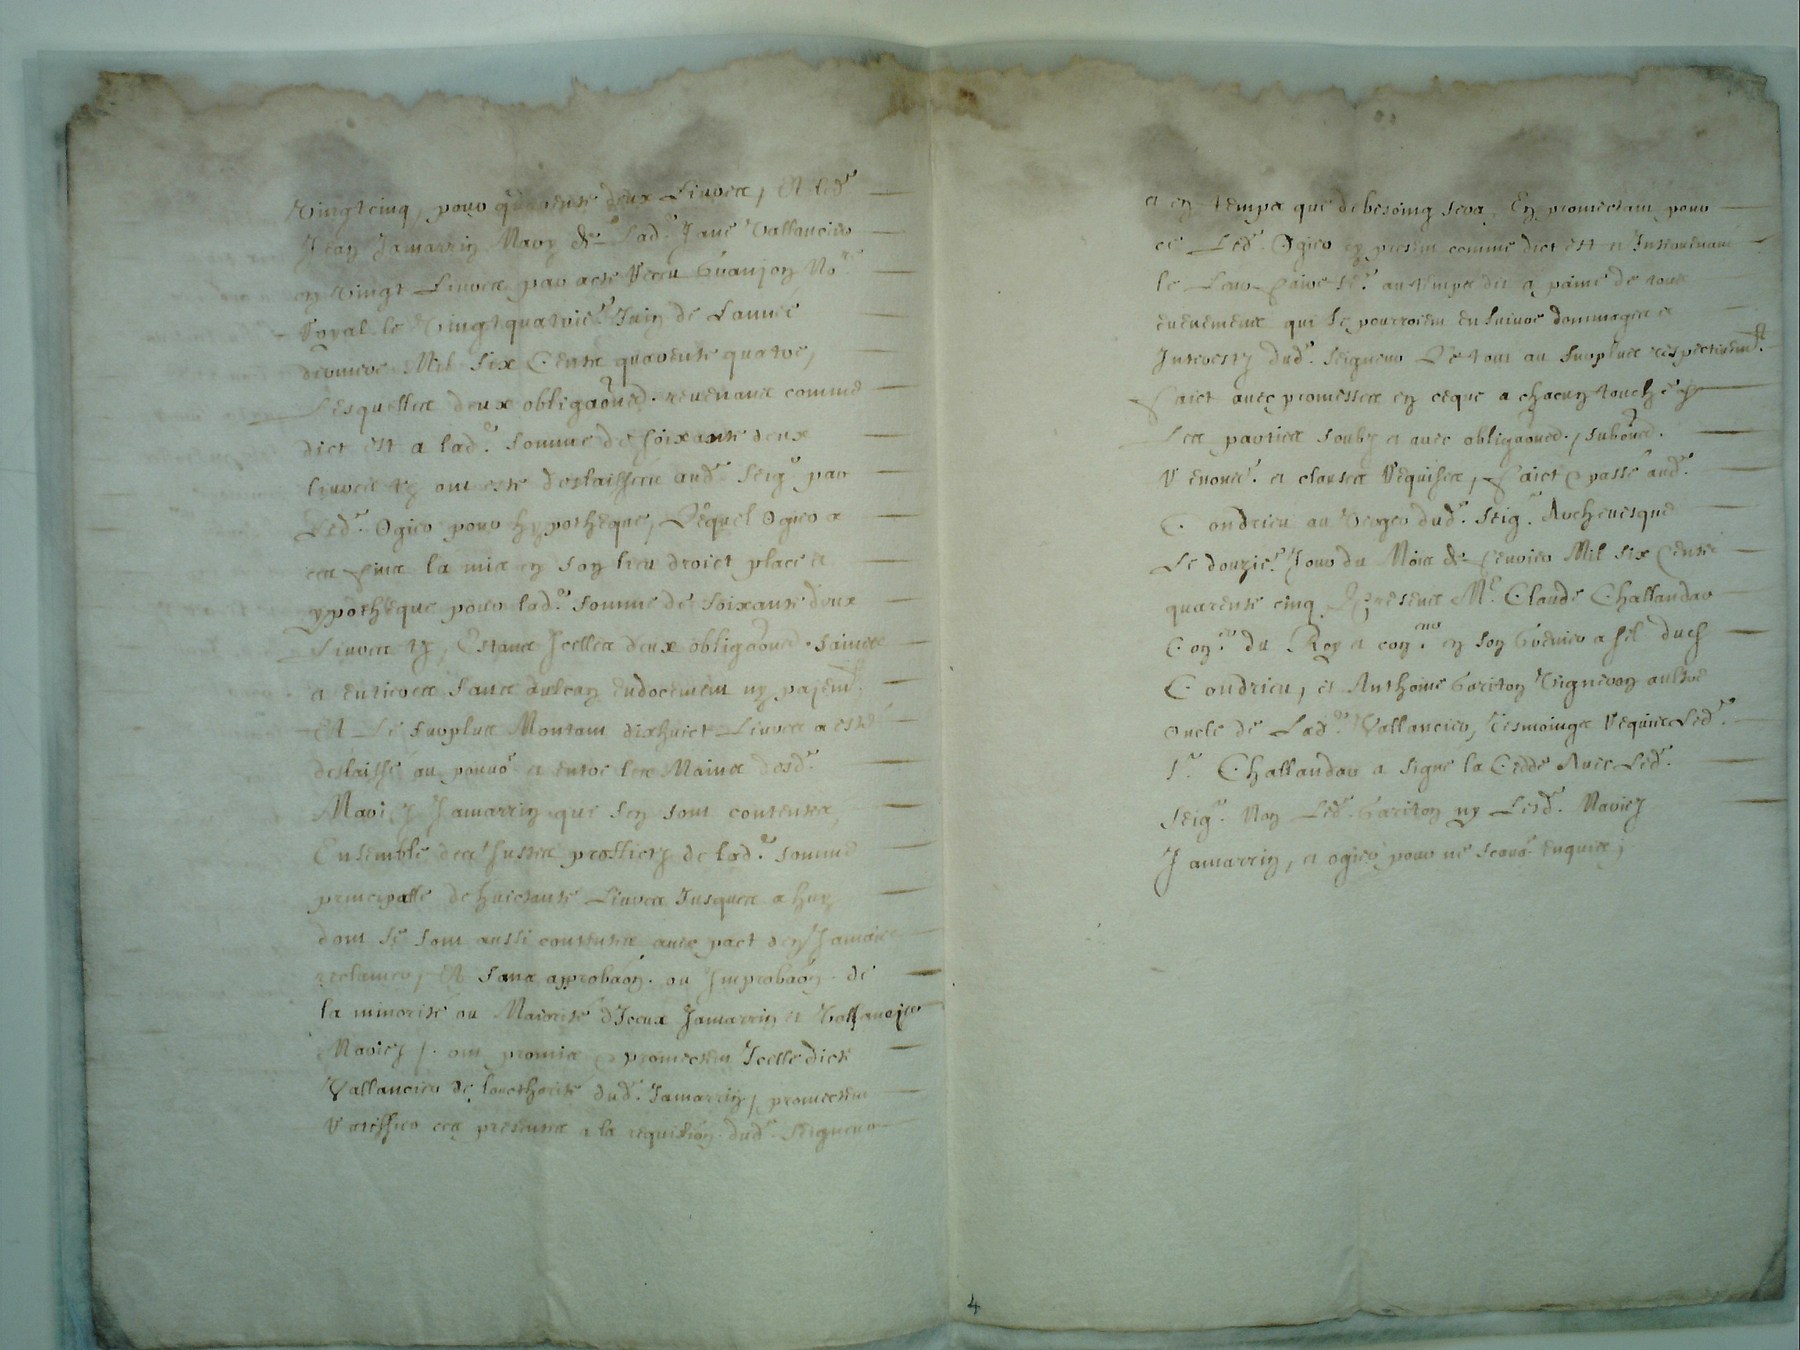 Vingtcinq, pour quarente deux Livres, Et led.
Jean Jamarrin Mary de Lad. Jane Vallancier
en Vingt Livres par acte Receu Granjon No.re
Royal le Vingtquatrie. Juin de Lannee
derniere Mil Six Cents quarente quatre,
Lesquelles deux obligaoned. revenans comme
dict est a lad. Somme de Soixante deux
livres tz ont este deslaissees aud. Seig. par
Led. Ogier pour hypotheque, Lequel Ogier a
ces fins la mis en Son lieu droict place et
ypotheque pour lad. Somme de Soixante deux
Livres tz, Estans Jcelles deux obligaoned. Saines
et entieres Sans aulcun endocement ny pajemt.
Et Le Surplus Montant dixhuict Livres a este
deslaisse au pouvo. et entre les Mains desd.
Mariez Jamarrin que Sen Sont contentes
Ensemble des Justes proffictz de lad. Somme
principalle de huictante Livres Jusques a huy
dont Se Sont aussi contentes avec pact den Jamais
reclamer, Et Sans approbaon. ou Jmprobaon. de
la minorite ou Maiorite dJceux Jamarrin et Vallancier
Mariez ont promis & promectent Jcelle dicte
Vallancier de lauthorite dud. Jamarrin, promectent
Ratiffier ces presentes a la requisition dud. Seigneur
et en temps que de besoing Sera, En promectant pour
ce Led. Ogier cy present comme dict est et Jntervenant
le Leur faire fe. au temps dit a paine de tous
evenements qui Se pourroient ensuivre dommages et
Jnterestz dud. Seigneur Le tout au Surplus respectivemt.
faict avec promesses en ceque a chacun touche
Les parties Soubz et avec obligaoned., Subоned.
Renonc. et clauses Requises, faict & passe aud.
Condrieu au Verger dud. Seig. Archevesque
Le douzie. Jour du Mois de fevrier Mil Six Cents
quarente cinq Presens Me. Claude Challandar
Con. du Roy et con. en Son Grenier a Sel dud
Condrieu, et Anthoine Gariton Vigneron aultre
oncle de Lad. Vallancier, tesmoings Requis Led.
Sr. Challandar a Signe la Cedde Avec Led.
Seig. Non Led. Gariton ny Lesd. Mariez
Jamarrin, et ogier pour ne Scavo. enquis,
4